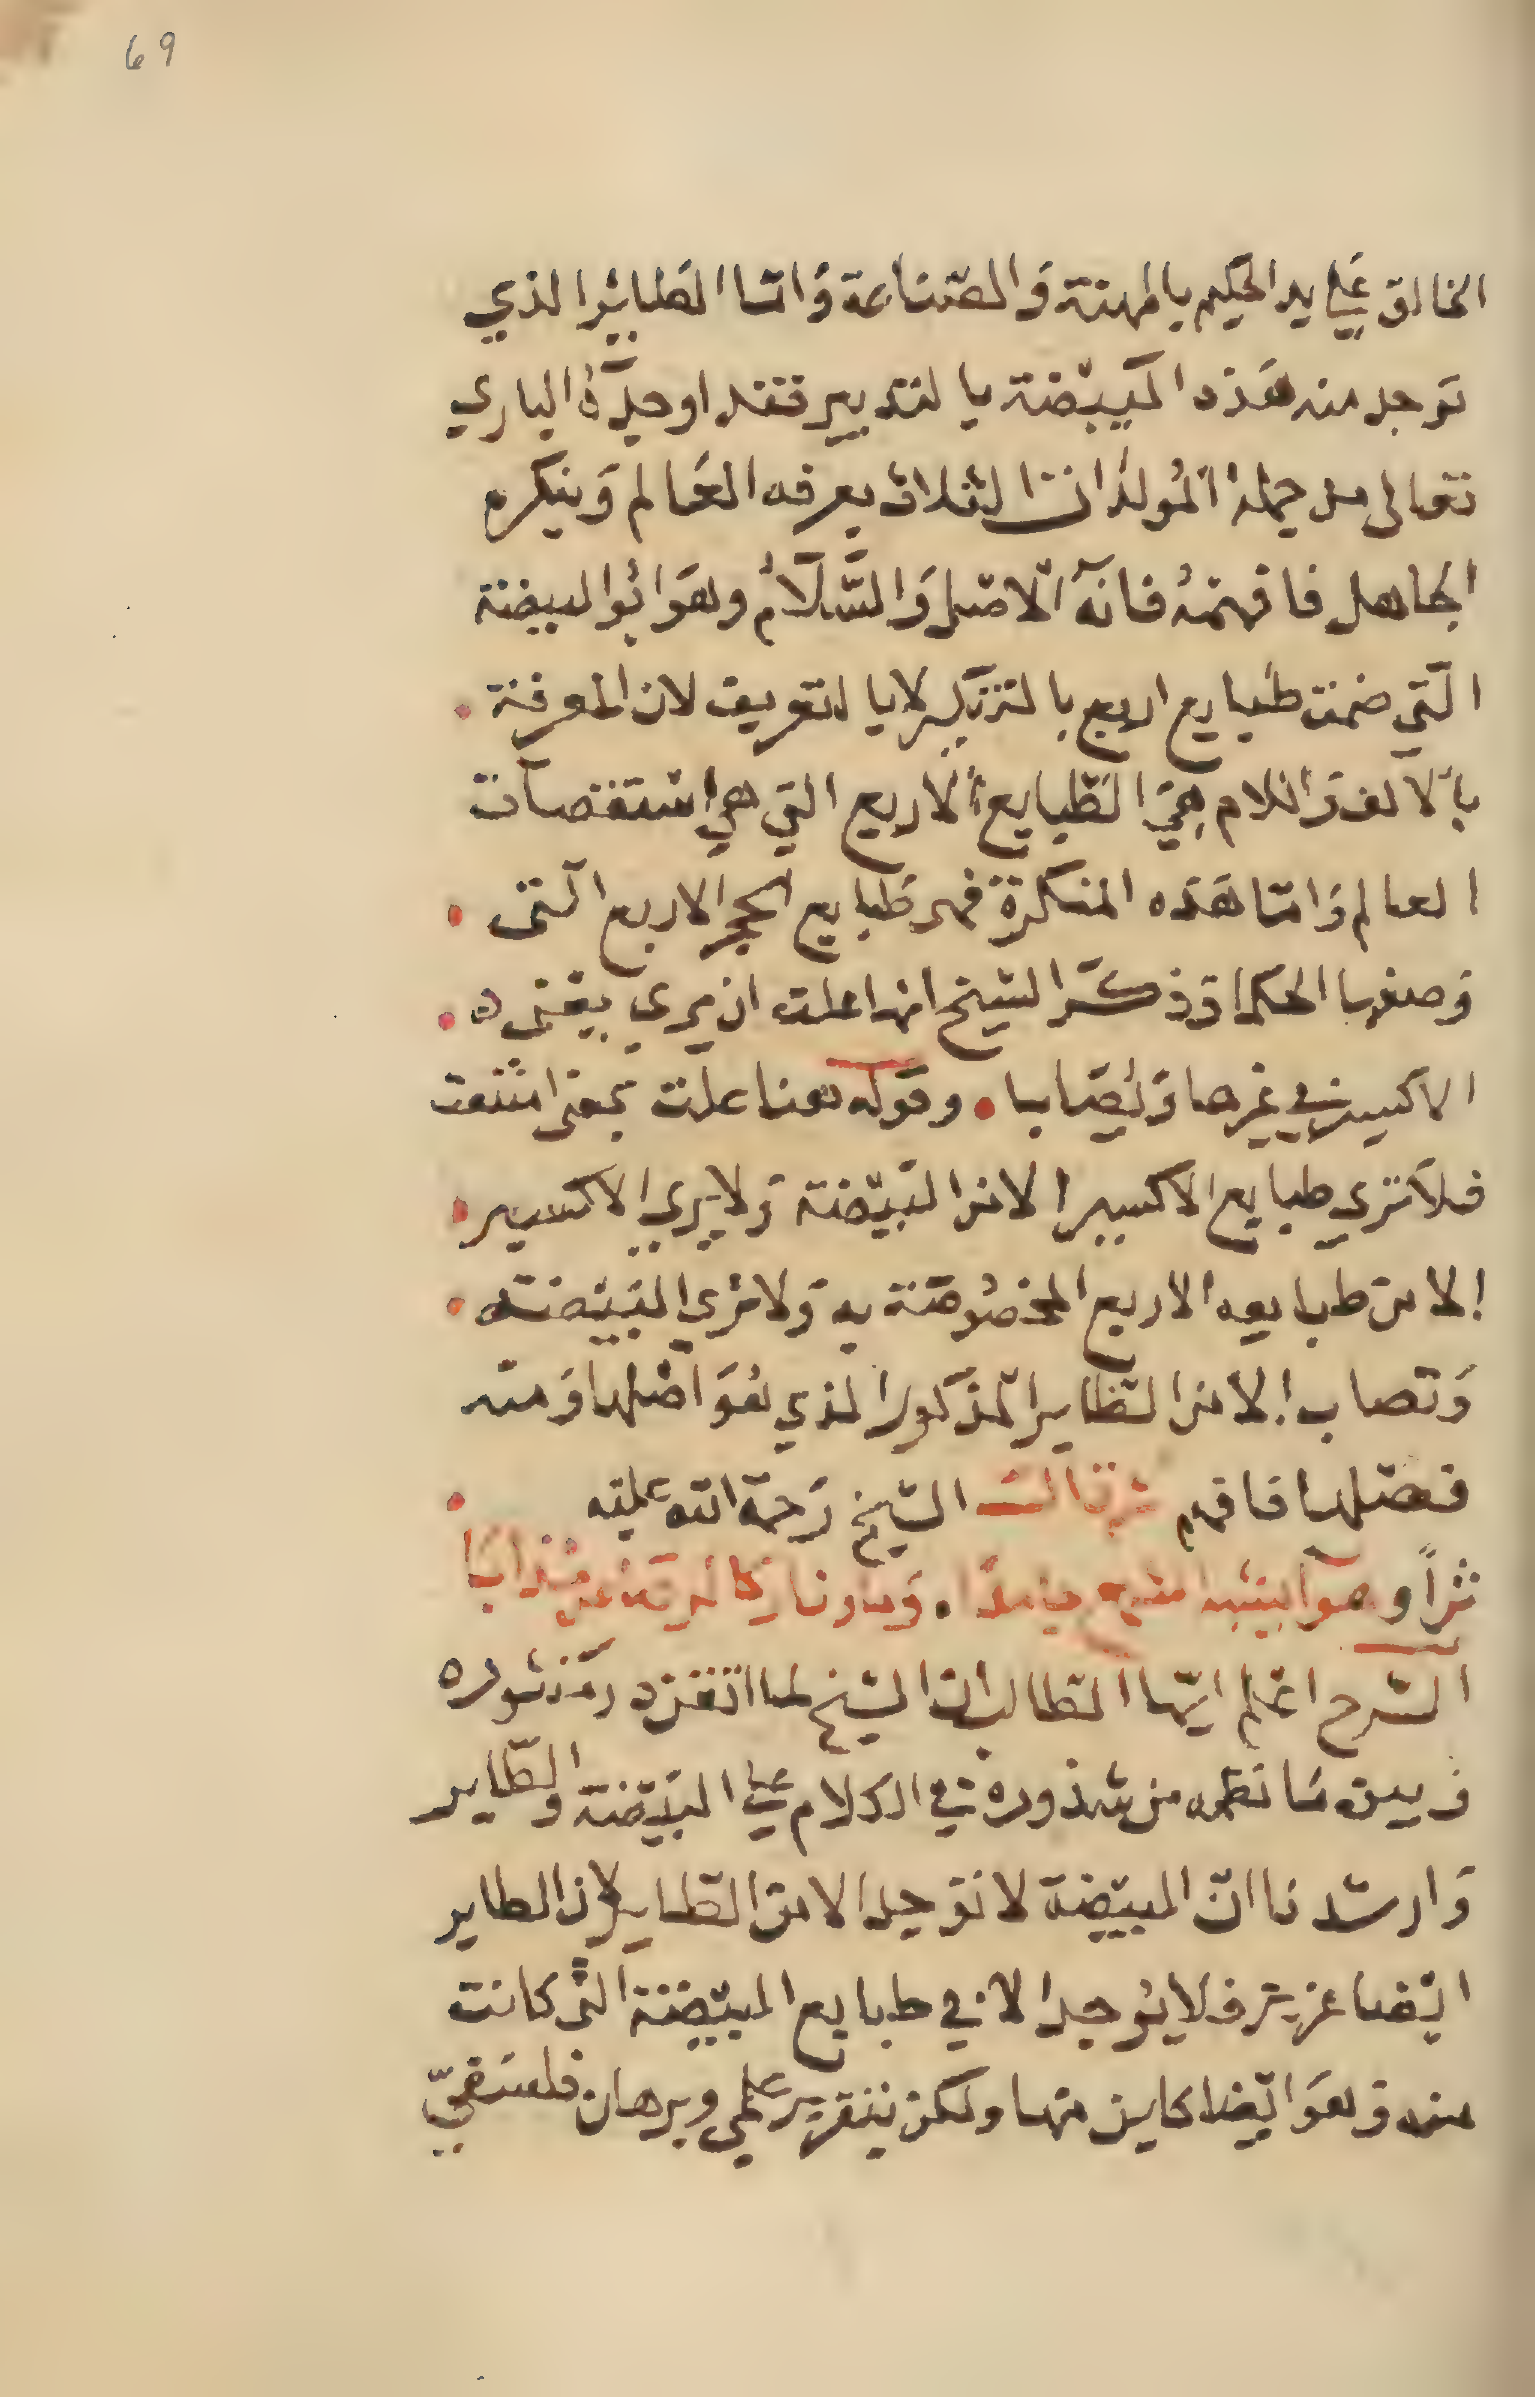 69
الخالق علي يد الحكيم بالمهنة وَالصّناعة وَامّا الطايرُ الذي
توجد منه هَذه البَيّضة بالتدبير فقد اوجدَهُ الباري
تعالى من جملة المُولدَات الثلاث يعرفه العَالم وَينكره
الجاهل فافهمْهُ فانّهُ الاصْل وَالسَّلامُ وهوَ ابُو البيضة
الّتي ضمنت طبايع اربع بالتنكير لا بالتعريف لان المعرفة
بالالف وَاللام هيَ الطّبايع الاربع التي هي استقصات
العالم وَامّا هَذه المنكرة فهي طَبايع الحجر الاربع التي
وَصفها الحكما وَذكَر الشيخ انها علت ان يري بيّضه
الاكسير في غيرها وَيُصَابا . وقوله هنا علت بمعنى امتنعت
فلا تري طبايع الاكسير الا من البَيّضة وَلا يري الاكسير
الا من طبايعه الاربع المخصُوصَة به وَلا تري البَيّضة
وَتصاب الا من الطّاير المذكور الذي هُوَ اصْلها وَمنه
فصْلها فافهم ثم قال الشيخ رَحمة الله عليه
نثراً وهو
الشرح اعْلم ايّها الطالب ان الشيخ لما
فيه مَا نظمه من شذوره في الكلام علي البَيّضة والطّاير
وَارشدنا انّ البيّضة لا توجد الا من الطاير لان الطاير
ايْضا عزيز فلا يُوجد الا في طبايع البيّضة الّتي كانت
منه وَهوَ ايْضا كاين منها ولكن بتقرير علمي وبرهان فلسَفيّ